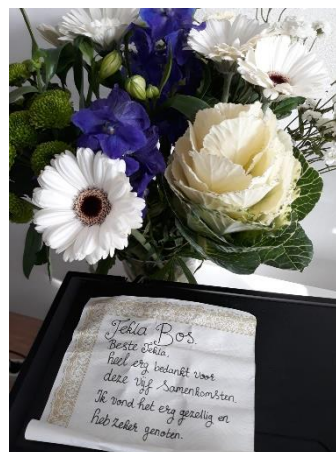 Tekla Bos.
Beste Tekla,
heel erg bedankt voor
deze vijf samenkomsten.
Ik vond het erg gezellig en
heb zeker genoten.